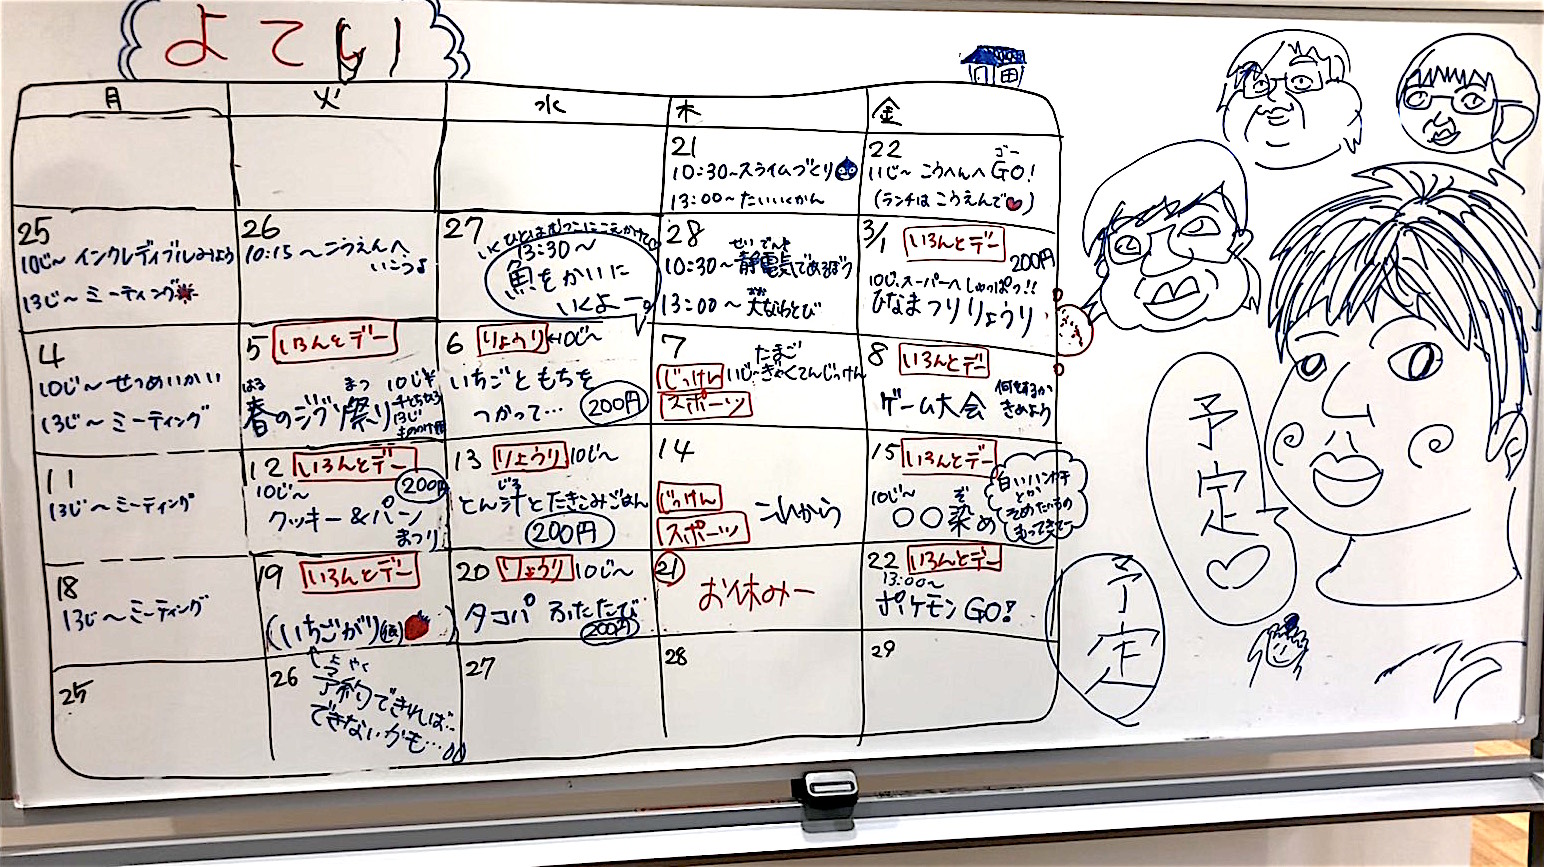 よてい
月 火 水 木 金
21
10:30~スライムづくり
13:00~たいいくかん
22
11じ~こうへんへGO!
ゴー
(ランチはこうえんで)
25
10じ~インクレディブルみよう
13じ~ミーティング
26
10:15~こうえんへ
いこう♪
27
13:30~
魚をかいに
いくよー。
28
せいでんき
10:30~静電気であそぼう
おお
13:00~大なわとび
3/1
いろんとデー
200円
10じ、スーパーへしゅっぱつ!!
ひなまつりりょうり
4
10じ~せつめいかい
13じ~ミーティング
5
いろんとデー
はる まつ
春のジブリ祭り
10じ半
13じ
6
りょうり
10じ~
いちごともちを
つかって…
200円
7
たまご
じっけん
11じ~ぎゃくてんじっけん
スポーツ
8
いろんとデー
ゲーム大会
何をするか
きめよう
11
13じ~ミーティング
12
いろんとデー
10じ~
200円
クッキー&パン
まつり
13
りょうり
10じ~
じる
とん汁とたきこみごはん
200円
14
じっけん
スポーツ
これから
15
いろんとデー
10じ~
ぞ
〇〇染め
白いハンカチ
とか
そめたいもの
もってきてー
18
13じ~ミーティング
19
いろんとデー
(いちごがり(仮))
20
りょうり
10じ~
タコパ ふたたび
200円
21
お休みー
22
いろんとデー
13:00~
ポケモンGO!
25
26
よやく
予約できれば…
できないかも…
27
28
29
予定
予定